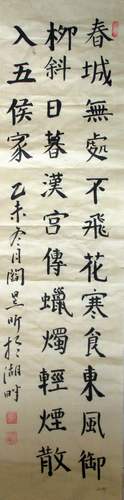 春城無處不飛花寒食東風御
柳斜日暮漢宮傳蠟燭輕煙散
入五侯家
乙未冬月閻昱昕於湖畔